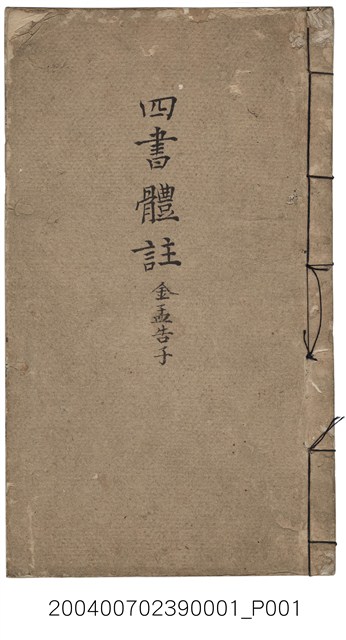 四書體註
金孟告子
200400702390001_P001